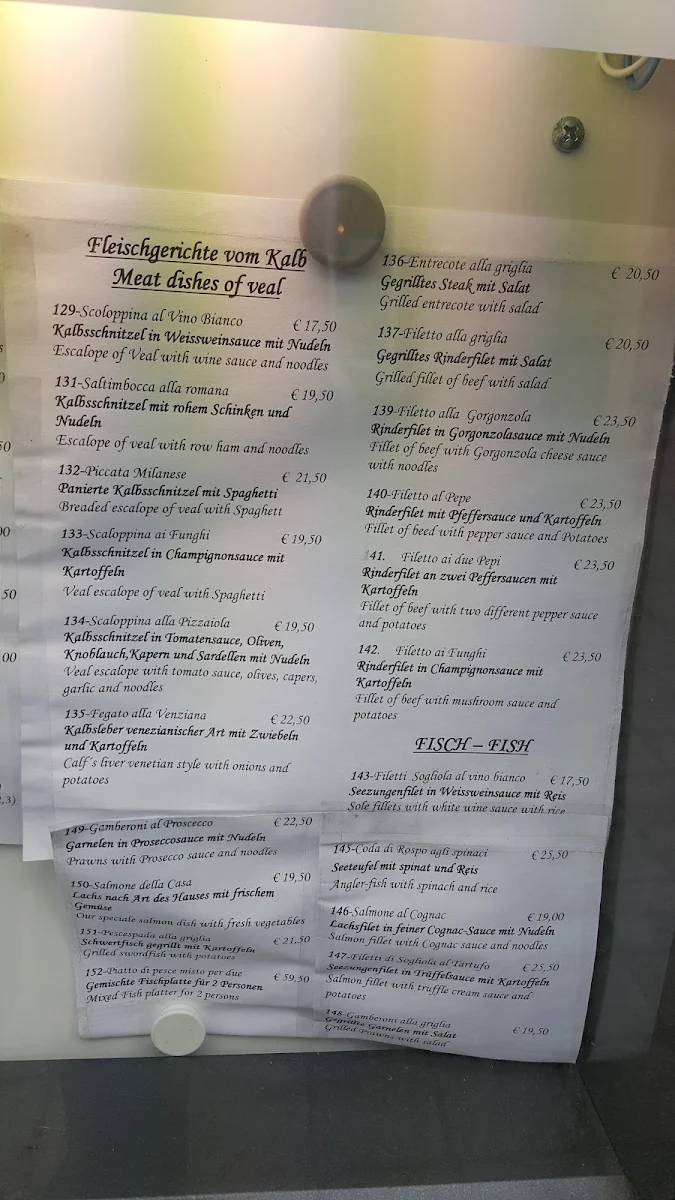 Fleischgerichte vom Kalb
Meat dishes of veal
129-Scoloppina al Vino Bianco € 17,50
Kalbsschnitzel in Weissweinsauce mit Nudeln
Escalope of Veal with wine sauce and noodles
131-Saltimbocca alla romana € 19,50
Kalbsschnitzel mit rohem Schinken und
Nudeln
Escalope of veal with row ham and noodles
132-Piccata Milanese € 21,50
Panierte Kalbsschnitzel mit Spaghetti
Breaded escalope of veal with Spaghett
133-Scaloppina ai Funghi € 19,50
Kalbsschnitzel in Champignonsauce mit
Kartoffeln
Veal escalope of veal with Spaghetti
134-Scaloppina alla Pizzaiola € 19,50
Kalbsschnitzel in Tomatensauce, Oliven,
Knoblauch,Kapern und Sardellen mit Nudeln
Veal escalope with tomato sauce, olives, capers,
garlic and noodles
135-Fegato alla Venziana € 22,50
Kalbsleber venezianischer Art mit Zwiebeln
und Kartoffeln
Calf's liver venetian style with onions and
potatoes
136-Entrecote alla griglia € 20,50
Gegrilltes Steak mit Salat
Grilled entrecote with salad
137-Filetto alla griglia € 20,50
Gegrilltes Rinderfilet mit Salat
Grilled fillet of beef with salad
139-Filetto alla Gorgonzola € 23,50
Rinderfilet in Gorgonzolasauce mit Nudeln
Fillet of beef with Gorgonzola cheese sauce
with noodles
140-Filetto al Pepe € 23,50
Rinderfilet mit Pfeffersauce und Kartoffeln
Fillet of beed with pepper sauce and Potatoes
141. Filetto ai due Pepi € 23,50
Rinderfilet an zwei Peffersaucen mit
Kartoffeln
Fillet of beef with two different pepper sauce
and potatoes
142. Filetto ai Funghi € 23,50
Rinderfilet in Champignonsauce mit
Kartoffeln
Fillet of beef with mushroom sauce and
potatoes
FISCH – FISH
143-Filetti Sogliola al vino bianco € 17,50
Seezungenfilet in Weissweinsauce mit Reis
Sole fillets with white wine sauce with rice
149-Gamberoni al Proscecco € 22,50
Garnelen in Proseccosauce mit Nudeln
Prawns with Prosecco sauce and noodles
150-Salmone della Casa € 19,50
Lachs nach Art des Hauses mit frischem
Gemüse
Our speciale salmon dish with fresh vegetables
151-Pescespada alla griglia € 21,50
Schwertfisch gegrillt mit Kartoffeln
Grilled swordfish with potatoes
152-Piatto di pesce misto per due € 59,50
Gemischte Fischplatte für 2 Personen
Mixed Fish platter for 2 persons
145-Coda di Rospo agli spinaci € 25,50
Seeteufel mit spinat und Reis
Angler-fish with spinach and rice
146-Salmone al Cognac € 19,00
Lachsfilet in feiner Cognac-Sauce mit Nudeln
Salmon fillet with Cognac sauce and noodles
147-Filetti di Sogliola al Tartufo € 25,50
Seezungenfilet in Trüffelsauce mit Kartoffeln
Salmon fillet with truffle cream sauce and
potatoes
148-Gamberoni alla griglia € 19,50
Gegrillte Garnelen mit Salat
Grilled Prawns with salad